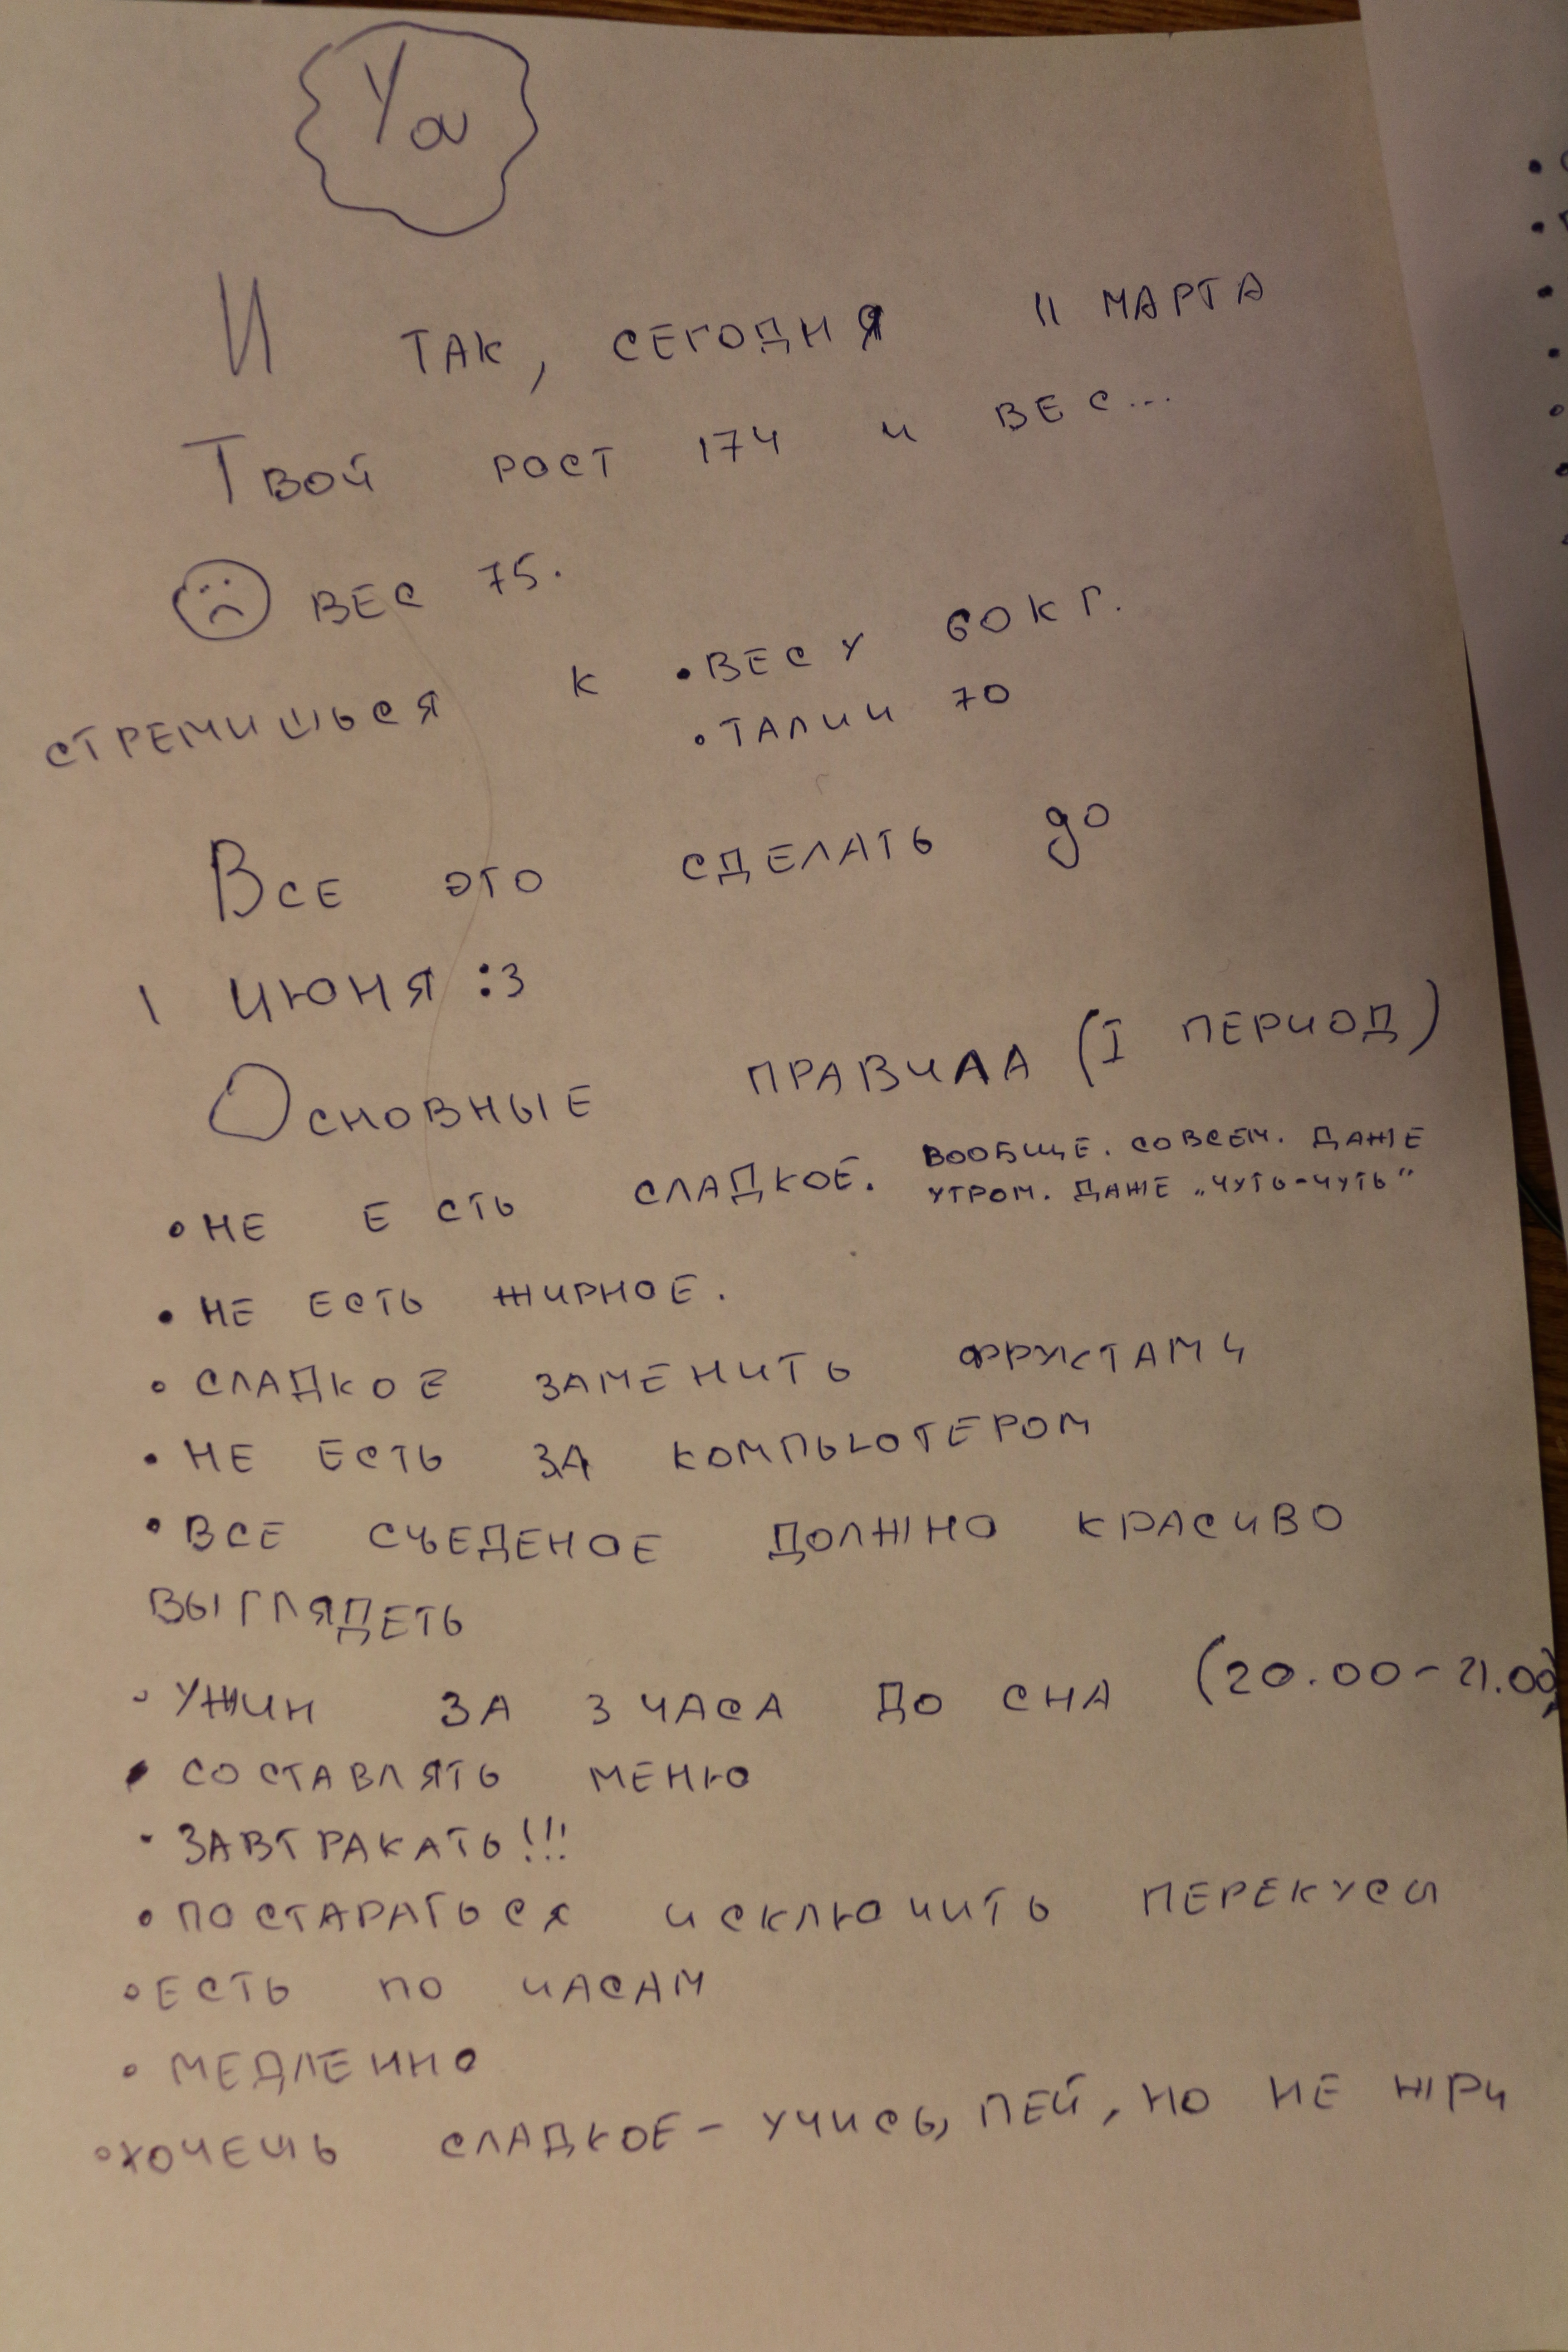 Ya
И так, сегодня 11 марта
Твой рост 174 и вес...
вес 75.
стремишься к • весу 60кг.
• талии 70
Все это сделать до
1 июня :3
Основные правила (I период)
• не есть сладкое. вообще. совсем. даже
утром. даже „чуть-чуть"
• не есть жирное.
• сладкое заменить фруктами
• не есть за компьютером
• все съеденое должно красиво
выглядеть
• ужин за 3 часа до сна (20.00-21.00)
• составлять меню
• завтракать!!!
• постараться исключить перекусы
• есть по часам
• медленно
• хочешь сладкое - учись, пей, но не жри